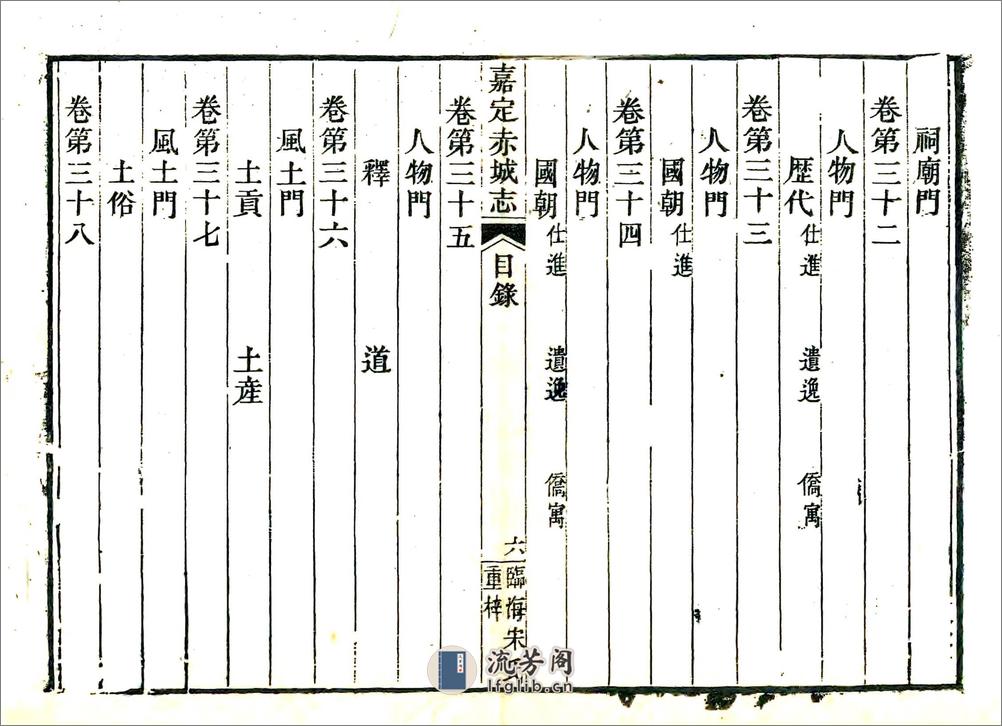 祠廟門
卷第三十二
人物門
歷代 仕進 遺逸 僑寓
卷第三十三
人物門
國朝 仕進
卷第三十四
人物門
國朝 仕進 遺逸 僑寓
嘉定赤城志 目錄 六 臨海宋
重梓
卷第三十五
人物門
釋 道
卷第三十六
風土門
土貢 土產
卷第三十七
風土門
土俗
卷第三十八
流芳阁
lfglib.cn